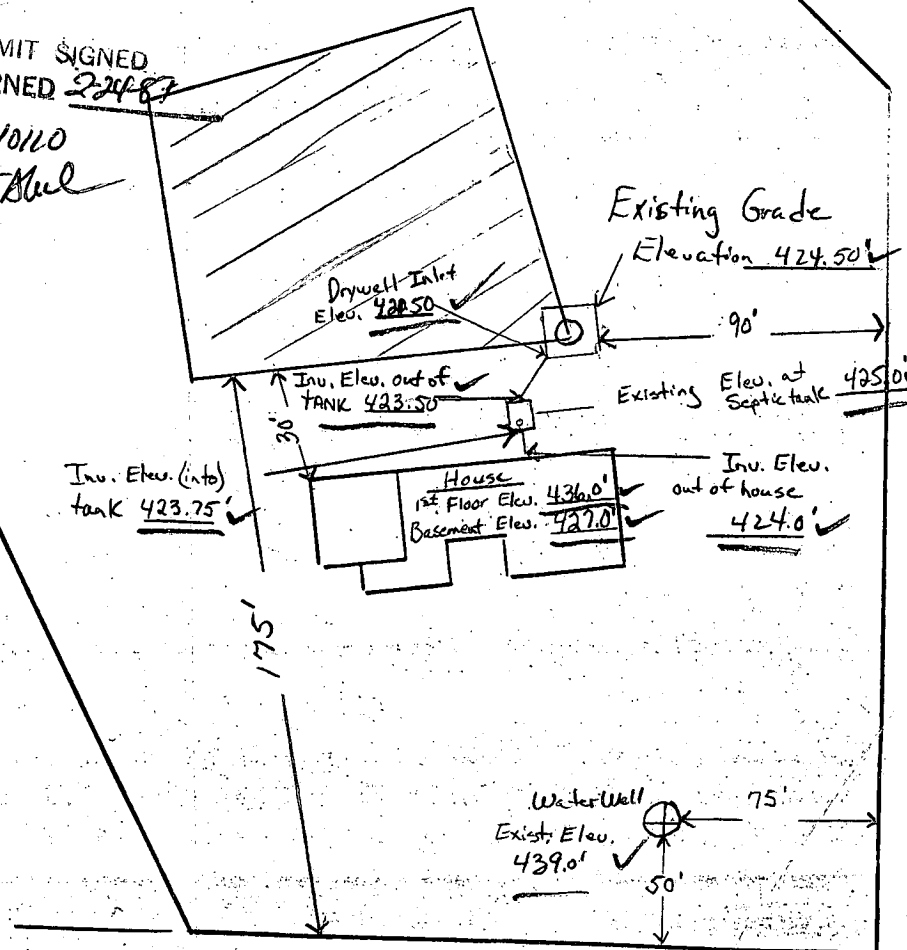 MIT SIGNED
RNED 2-24-87
Existing Grade
Elevation 424.50'
Drywell Inlet
Elev.
90'
Inv. Elev. out of
TANK 423.50
Existing Elev. at
Septic tank 425.0'
30'
Inv. Elev. (into)
tank 423.75'
House
1st Floor Elev. 436.0'
Basement Elev. 427.0'
Inv. Elev.
out of house
424.0'
175'
Water Well
Exist. Elev.
439.0'
75'
50'